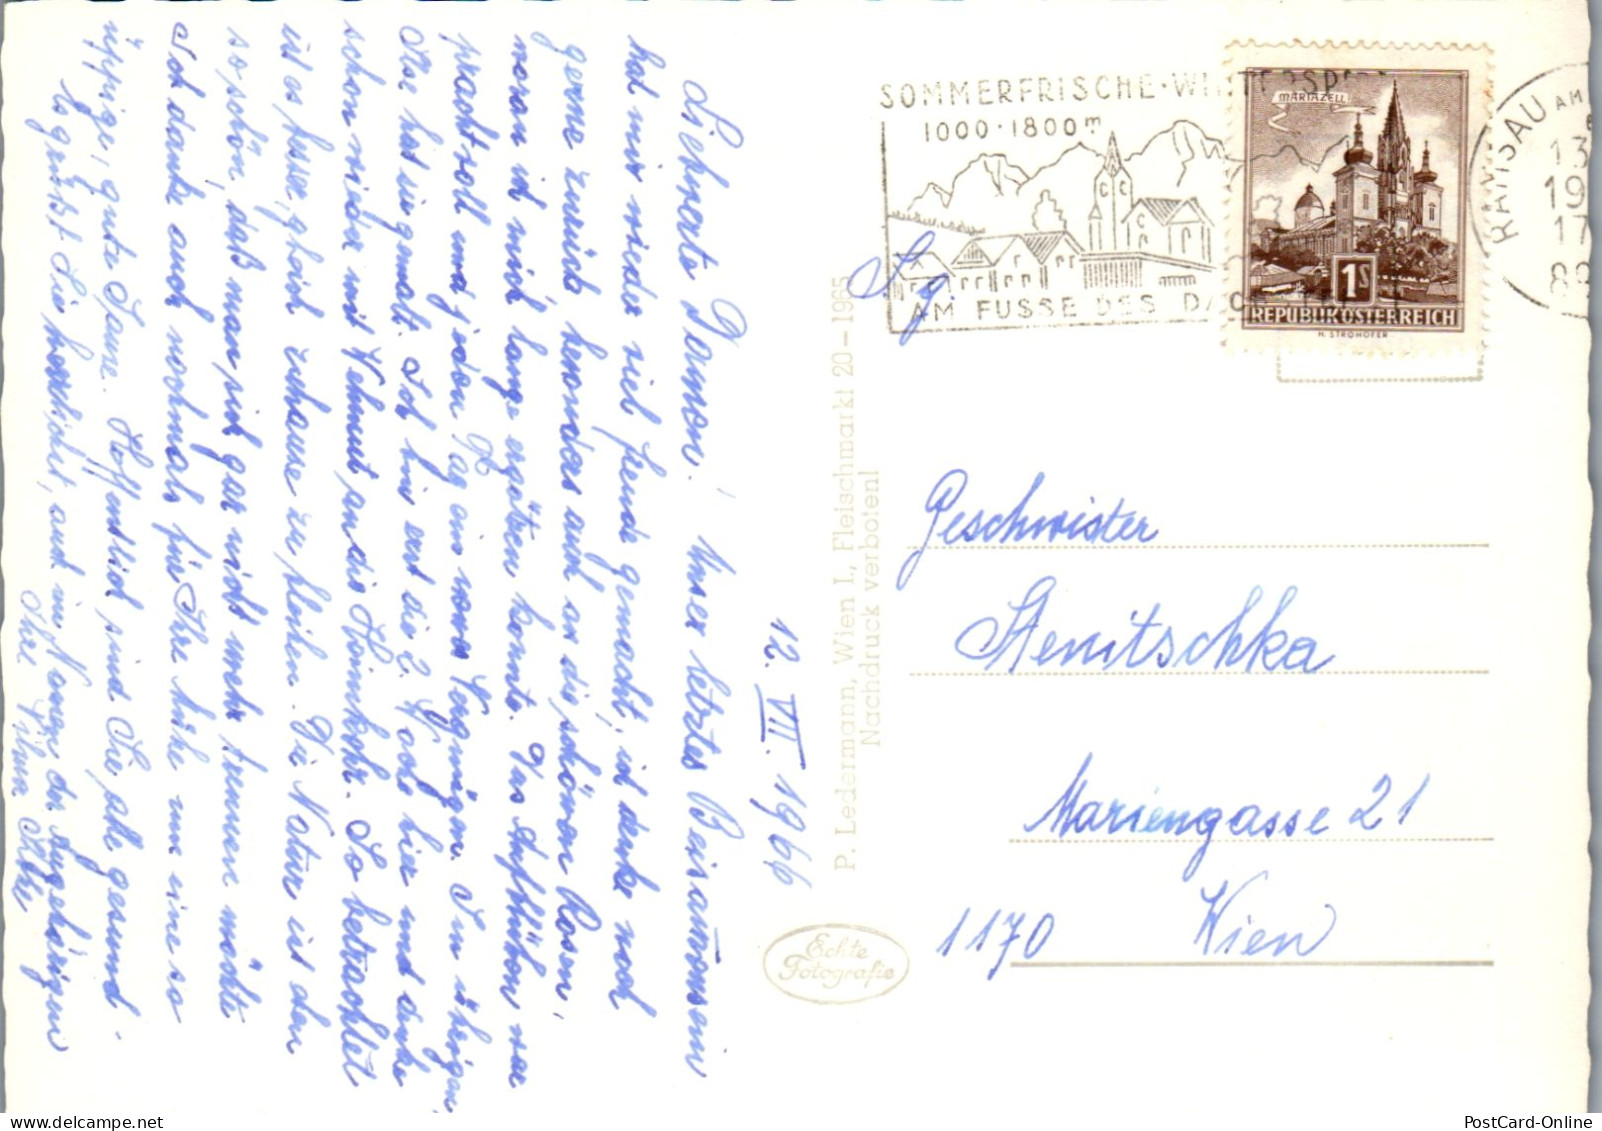 12. VII. 1966
Liebwerte Damen! Unser letztes Beisammensein
hat mir wieder viel Freude gemacht, ich denke noch
gerne zurück, besonders auch an die schönen Rosen,
woran ich mich lange ergötzen konnte. Das Aufblühen war
prachtvoll und jeden Tag ein neues Vergnügen. Im übrigen
Ilse hat sie gemalt. Ich bin erst die 2. Woche hier und denke
schon wieder mit Wehmut an die Heimkehr. So betrachtet
ist es besser, gleich zuhause zu bleiben. Die Natur ist eben
so schön, daß man sich gar nicht mehr trennen möchte
Ich danke auch nochmals für Ihre liebe und eine so
üppige, gute Jause. Hoffentlich sind Sie alle gesund.
Es grüßt Sie herzlichst, auch im Namen der Angehörigen
Ihre
SOMMERFRISCHE · WINTERSPORT
1000 · 1800 m
AM FUSSE DES DACHSTEIN
MARIAZELL
1S
REPUBLIK ÖSTERREICH
H. STROHOFER
RAMSAU AM
13
19
17
89
Sg.
Geschwister
Stenitschka
Mariengasse 21
1170 Wien
P. Ledermann, Wien I., Fleischmarkt 20 – 1965
Nachdruck verboten!
Echte
Fotografie
PostCard-Online